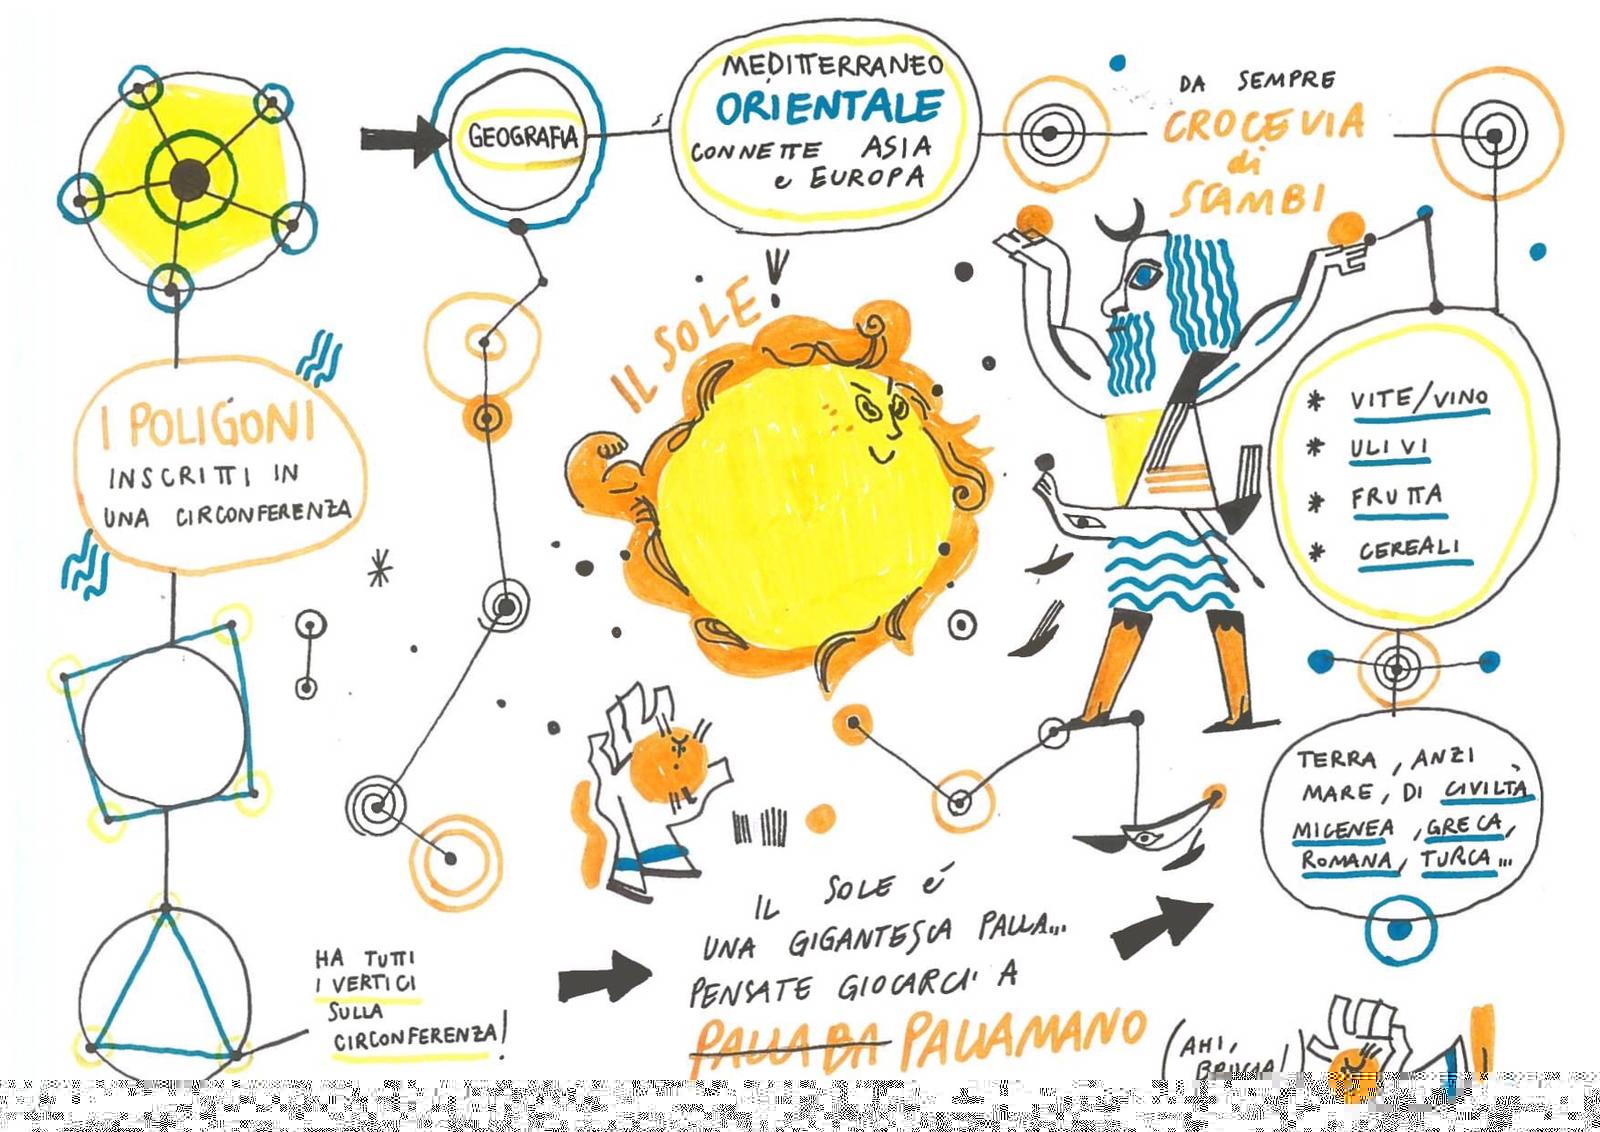 GEOGRAFIA
MEDITERRANEO
ORIENTALE
CONNETTE ASIA
e EUROPA
DA SEMPRE
CROCEVIA
di
SCAMBI
IL SOLE!
I POLIGONI
INSCRITTI IN
UNA CIRCONFERENZA
* VITE/VINO
* ULIVI
* FRUTTA
* CEREALI
TERRA, ANZI
MARE, DI CIVILTÀ
MICENEA, GRECA,
ROMANA, TURCA...
HA TUTTI
I VERTICI
SULLA
CIRCONFERENZA!
IL SOLE é
UNA GIGANTESCA PALLA...
PENSATE GIOCARCI A
PALLA BA PALLAMANO
(AHI,
BRUCIA!)